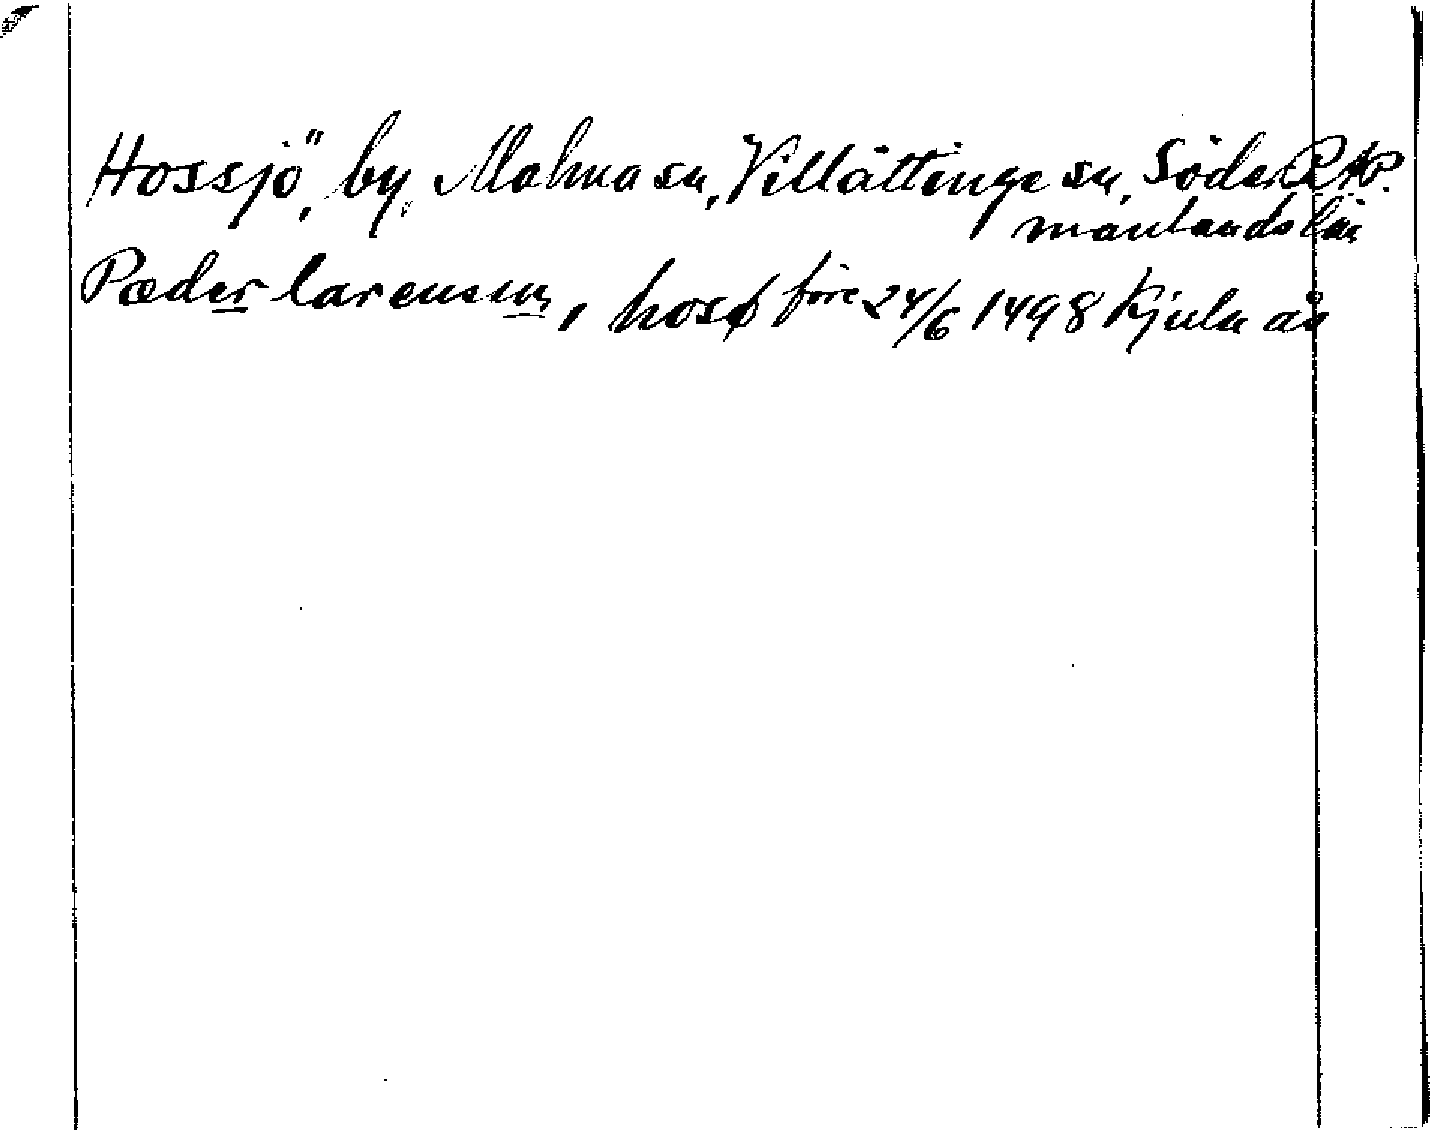 Hossjö, by, Malma sn, Villåttinge sn, Söder RAP.
manlands län
Pæder larensson, hosø före 24/6 1498 Kjula ås